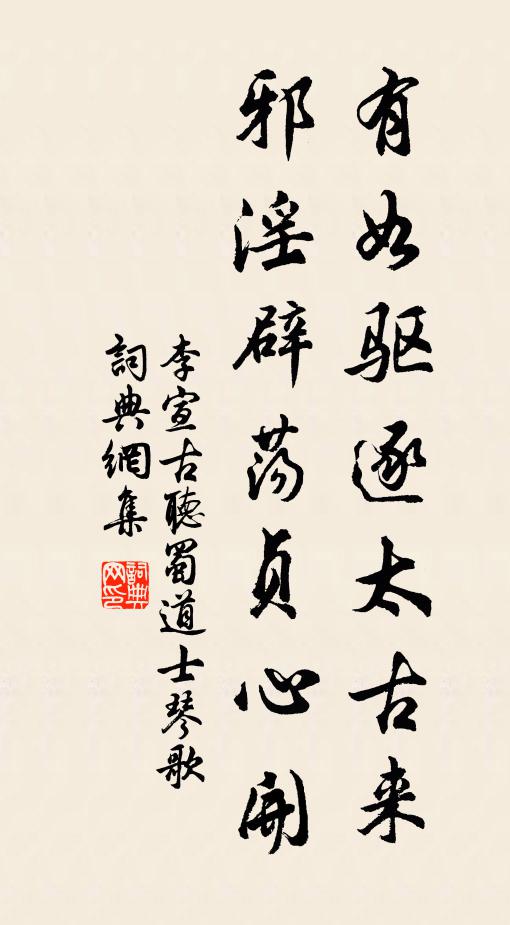 有如驱逐太古来
邪淫辟荡贞心開
李宣古聽蜀道士琴歌
詞典網集
詞典
网印